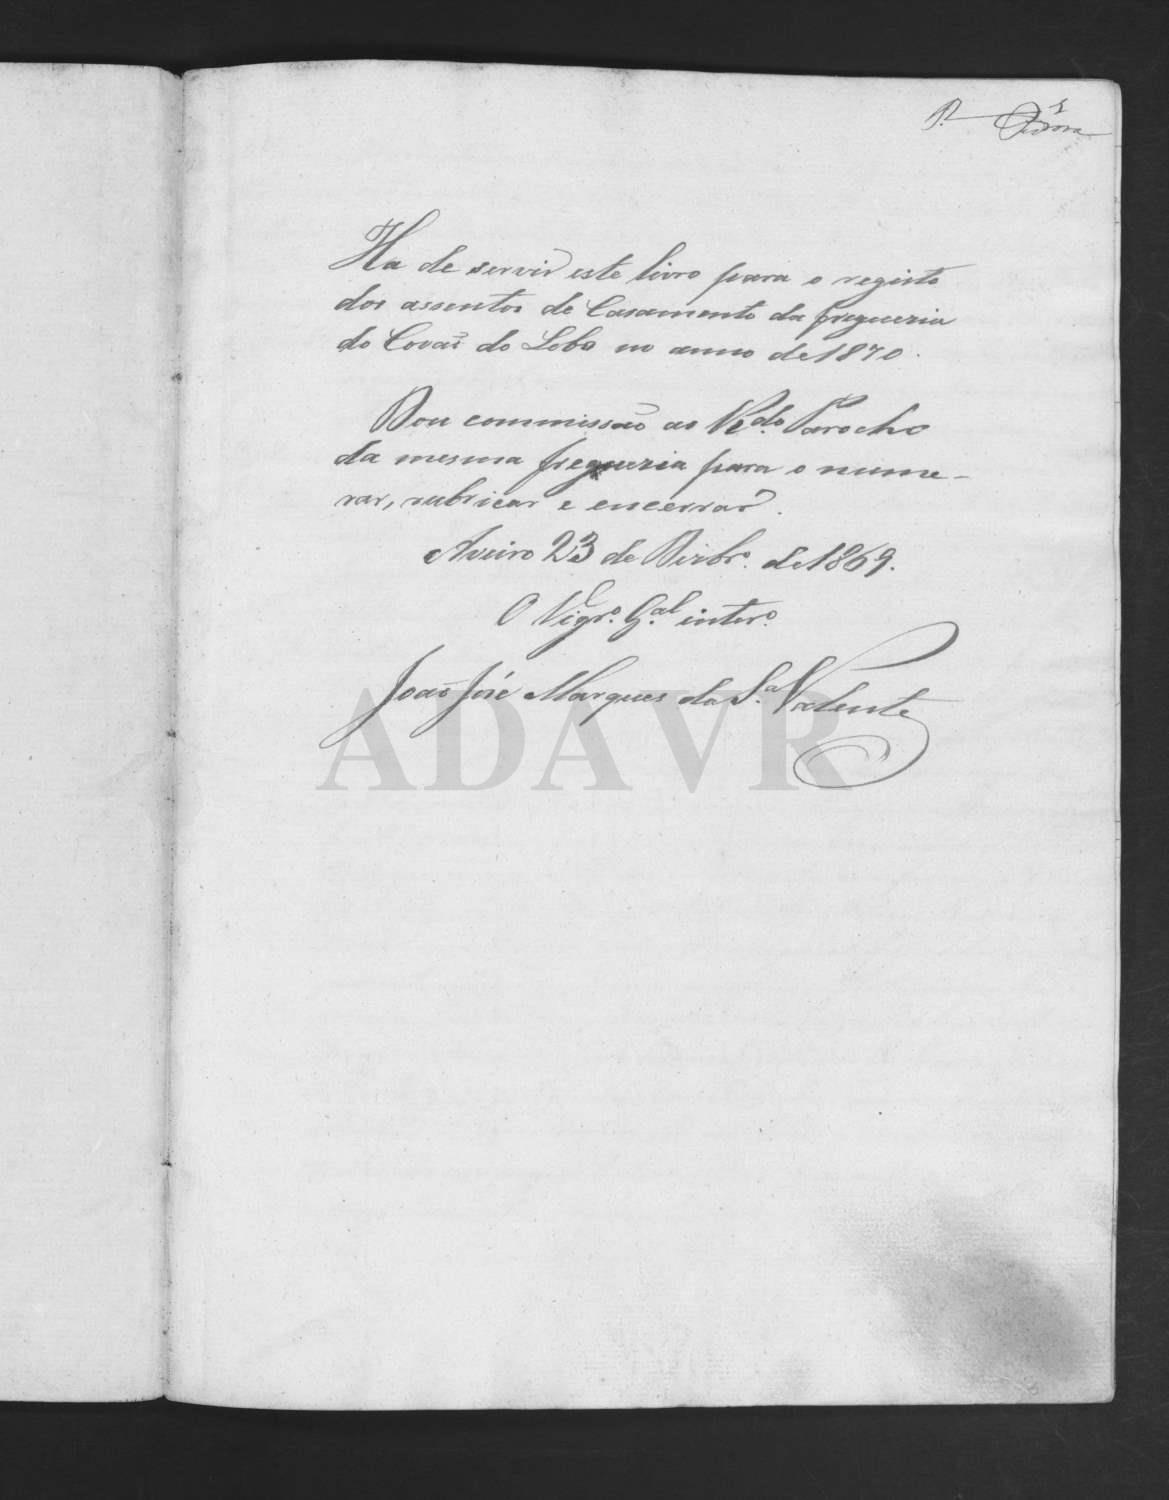 1
P.
Ha de servir este livro para o registo
dos assentos de Casamento da freguezia
de Covaõ do Lobo no anno de 1870.
Dou commissaõ ao R.do Parocho
da mesma freguezia para o nume-
rar, rubricar e encerrar.
Aveiro 23 de Dezbr.o de 1869.
O Vigr.o G.al inter.o
Joaõ José Marques da S.a Valente
ADAVR